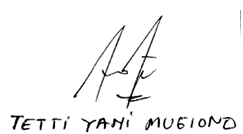 TETTI YANI MUGIONO